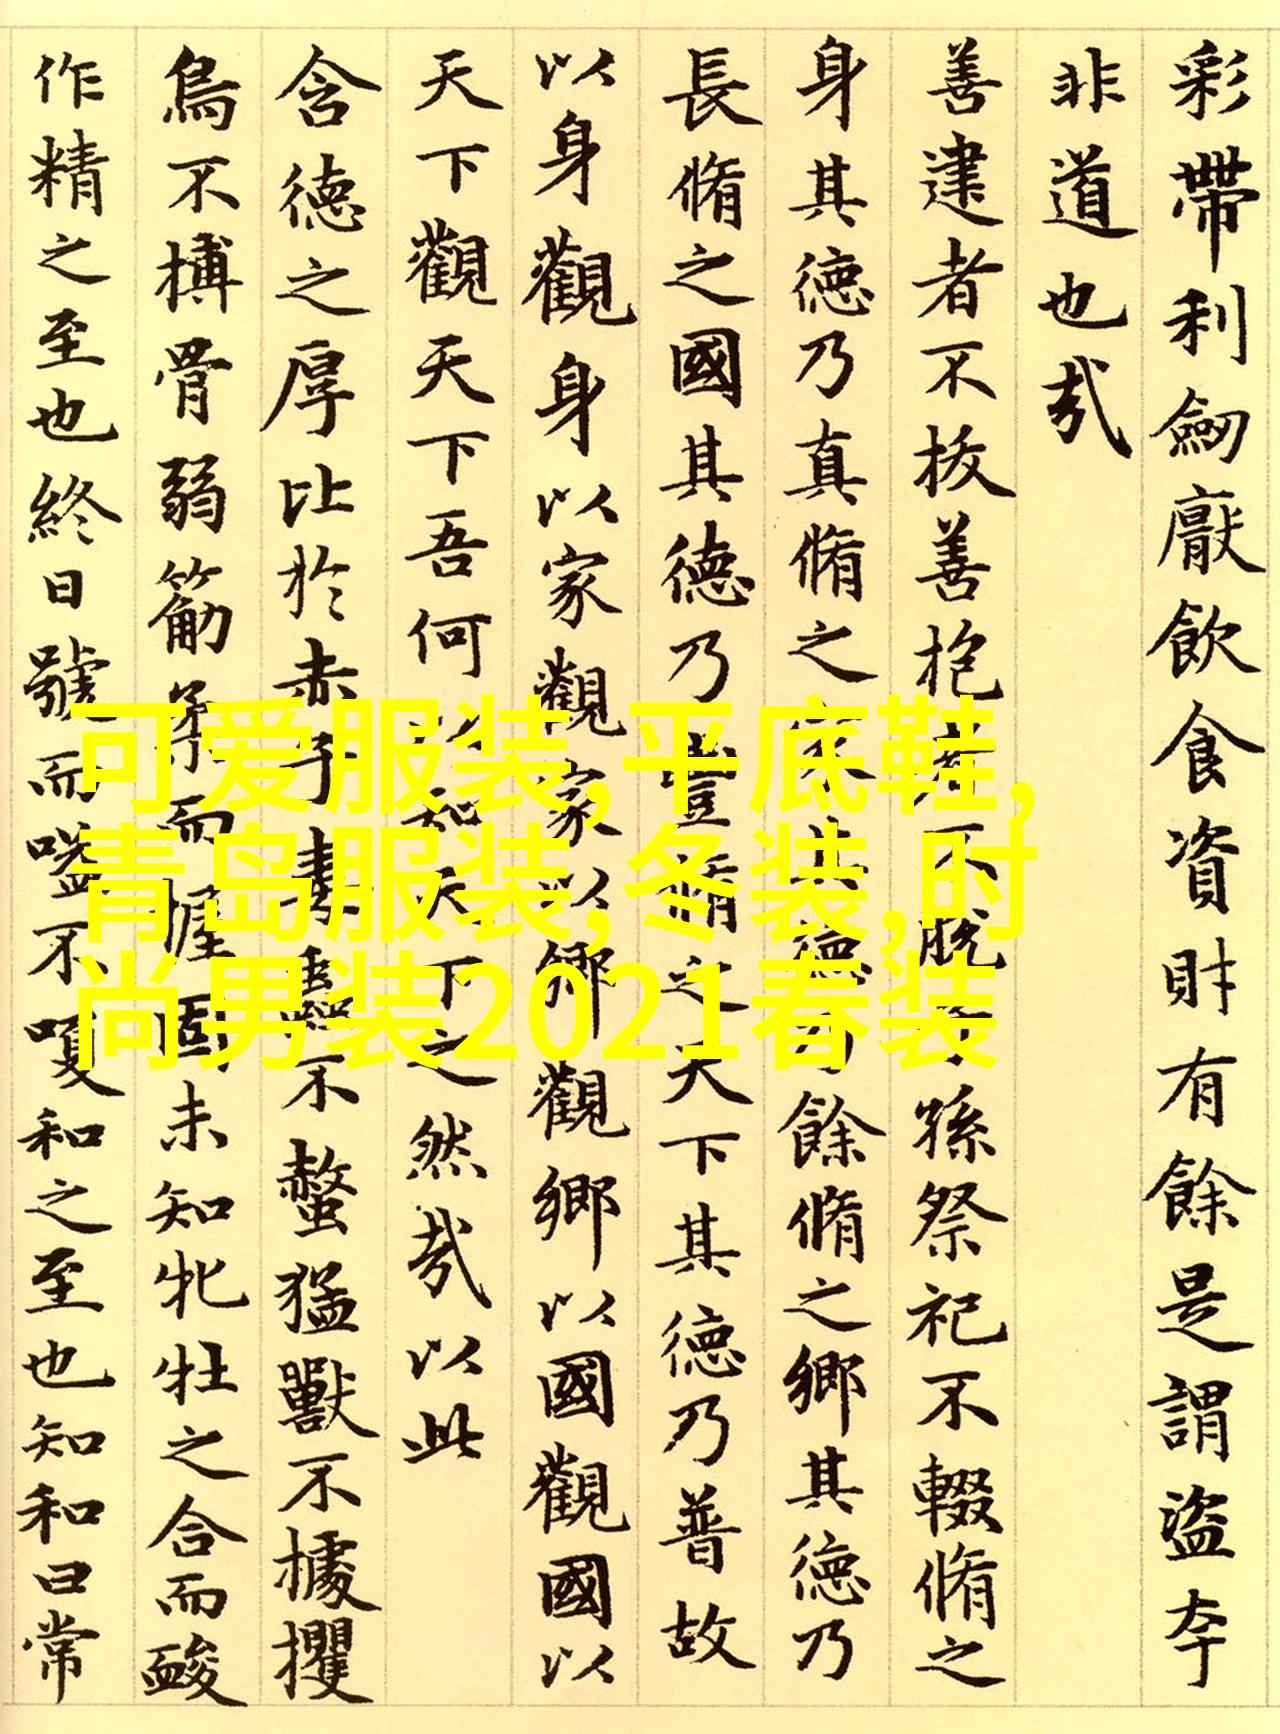 彩帶利劒厭飲食資財有餘是謂盜夸
非道也哉
善建者不拔善抱者不脱子孫祭祀不輟脩之
身其德乃真脩之家其德乃餘脩之鄉其德乃
長脩之國其德乃豊脩之天下其德乃普故
以身觀身以家觀家以鄉觀鄉以國觀國以
天下觀天下吾何以知天下之然哉以此
含德之厚比於赤子毒蟲不螫猛獸不據攫
鳥不搏骨弱筋柔而握固未知牝牡之合而酸
作精之至也終日號而嗌不嗄和之至也知和曰常
可爱服装,平底鞋,
青岛服装,冬装,时
尚男装2021春装